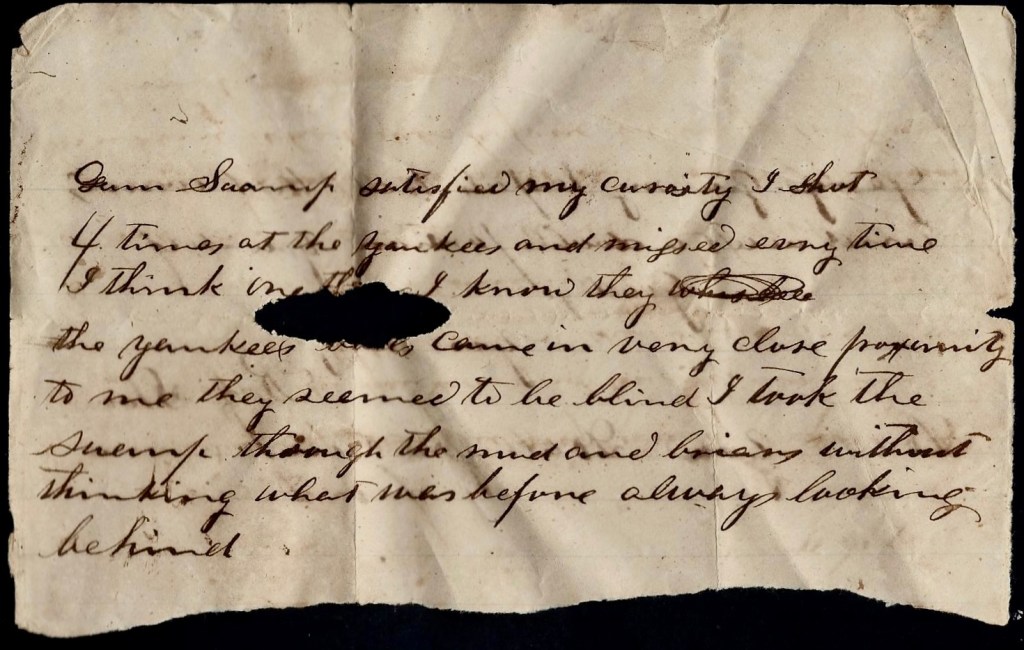 Gum Swamp satisfied my curosity I shot
4 times at the yankees and missed evry time
I think I know they
the yankees came in very close proxximity
to me they seemed to be blind I took the
swamp through the mud and briars without
thinking what was before always looking
behind